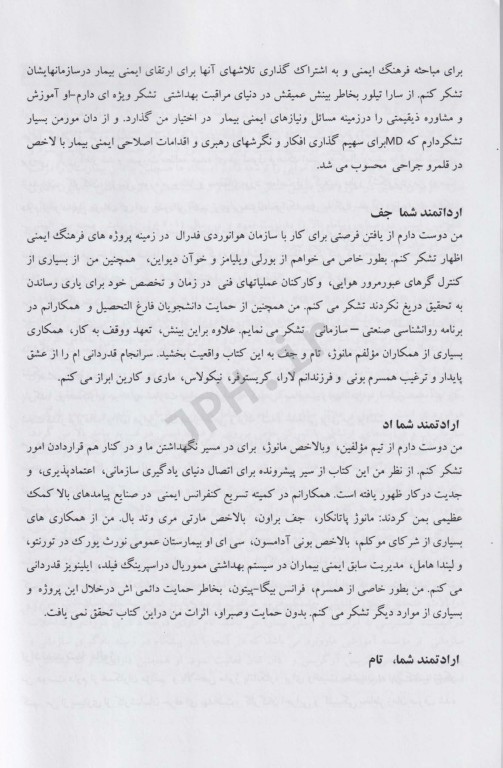 برای مباحثه فرهنگ ایمنی و به اشتراک گذاری تلاشهای آنها برای ارتقای ایمنی بیمار درسازمانهایشان
تشکر کنم. از سارا تیلور بخاطر بینش عمیقش در دنیای مراقبت بهداشتی تشکر ویژه ای دارم-او آموزش
و مشاوره ذیقیمتی را درزمینه مسائل ونیازهای ایمنی بیمار در اختیار من گذارد. و از دان مورمن بسیار
تشکردارم که MDبرای سهیم گذاری افکار و نگرشهای رهبری و اقدامات اصلاحی ایمنی بیمار با لاخص
در قلمرو جراحی محسوب می شد.
ارداتمند شما جف
من دوست دارم از یافتن فرصتی برای کار با سازمان هوانوردی فدرال در زمینه پروژه های فرهنگ ایمنی
اظهار تشکر کنم. بطور خاص می خواهم از بورلی ویلیامز و خوآن دیواین، همچنین من از بسیاری از
کنترل گرهای عبورمرور هوایی، وکارکتان عملیاتهای فنی در زمان و تخصص خود برای یاری رساندن
به تحقیق دریغ نکردند تشکر می کنم. من همچنین از حمایت دانشجویان فارغ التحصیل و همکارانم در
برنامه روانشناسی صنعتی – سازمانی تشکر می نمایم. علاوه براین بینش، تعهد ووقف به کار، همکاری
بسیاری از همکاران مؤلفم مانوژ، تام و جف به این کتاب واقعیت بخشید. سرانجام قدردانی ام را از عشق
پایدار و ترغیب همسرم بونی و فرزندانم لارا، کریستوفر، نیکولاس، ماری و کارین ابراز می کنم.
ارادتمند شما اد
من دوست دارم از تیم مؤلفین، وبالاخص مانوژ، برای در مسیر نگهداشتن ما و در کنار هم قراردادن امور
تشکر کنم. از نظر من این کتاب از سیر پیشرونده برای اتصال دنیای یادگیری سازمانی، اعتمادپذیری، و
جدیت درکار ظهور یافته است. همکارانم در کمیته تسریع کنفرانس ایمنی در صنایع پیامدهای بالا کمک
عظیمی بمن کردند: مانوژ پاتانکار، جف براون، بالاخص مارتی مری وتد بال. من از همکاری های
بسیاری از شرکای موکلم، بالاخص بونی آدامسون، سی ای او بیمارستان عمومی نورث یورک در تورنتو،
و لیندا هامل، مدیریت سابق ایمنی بیماران در سیستم بهداشتی مموریال دراسپرینگ فیلد، ایلینویز قدردانی
می کنم. من بطور خاصی از همسرم، فرانس بیگا-پیتون، بخاطر حمایت دائمی اش درخلال این پروژه و
بسیاری از موارد دیگر تشکر می کنم. بدون حمایت وصبراو، اثرات من دراین کتاب تحقق نمی یافت.
ارادتمند شما، تام
JPH.ir